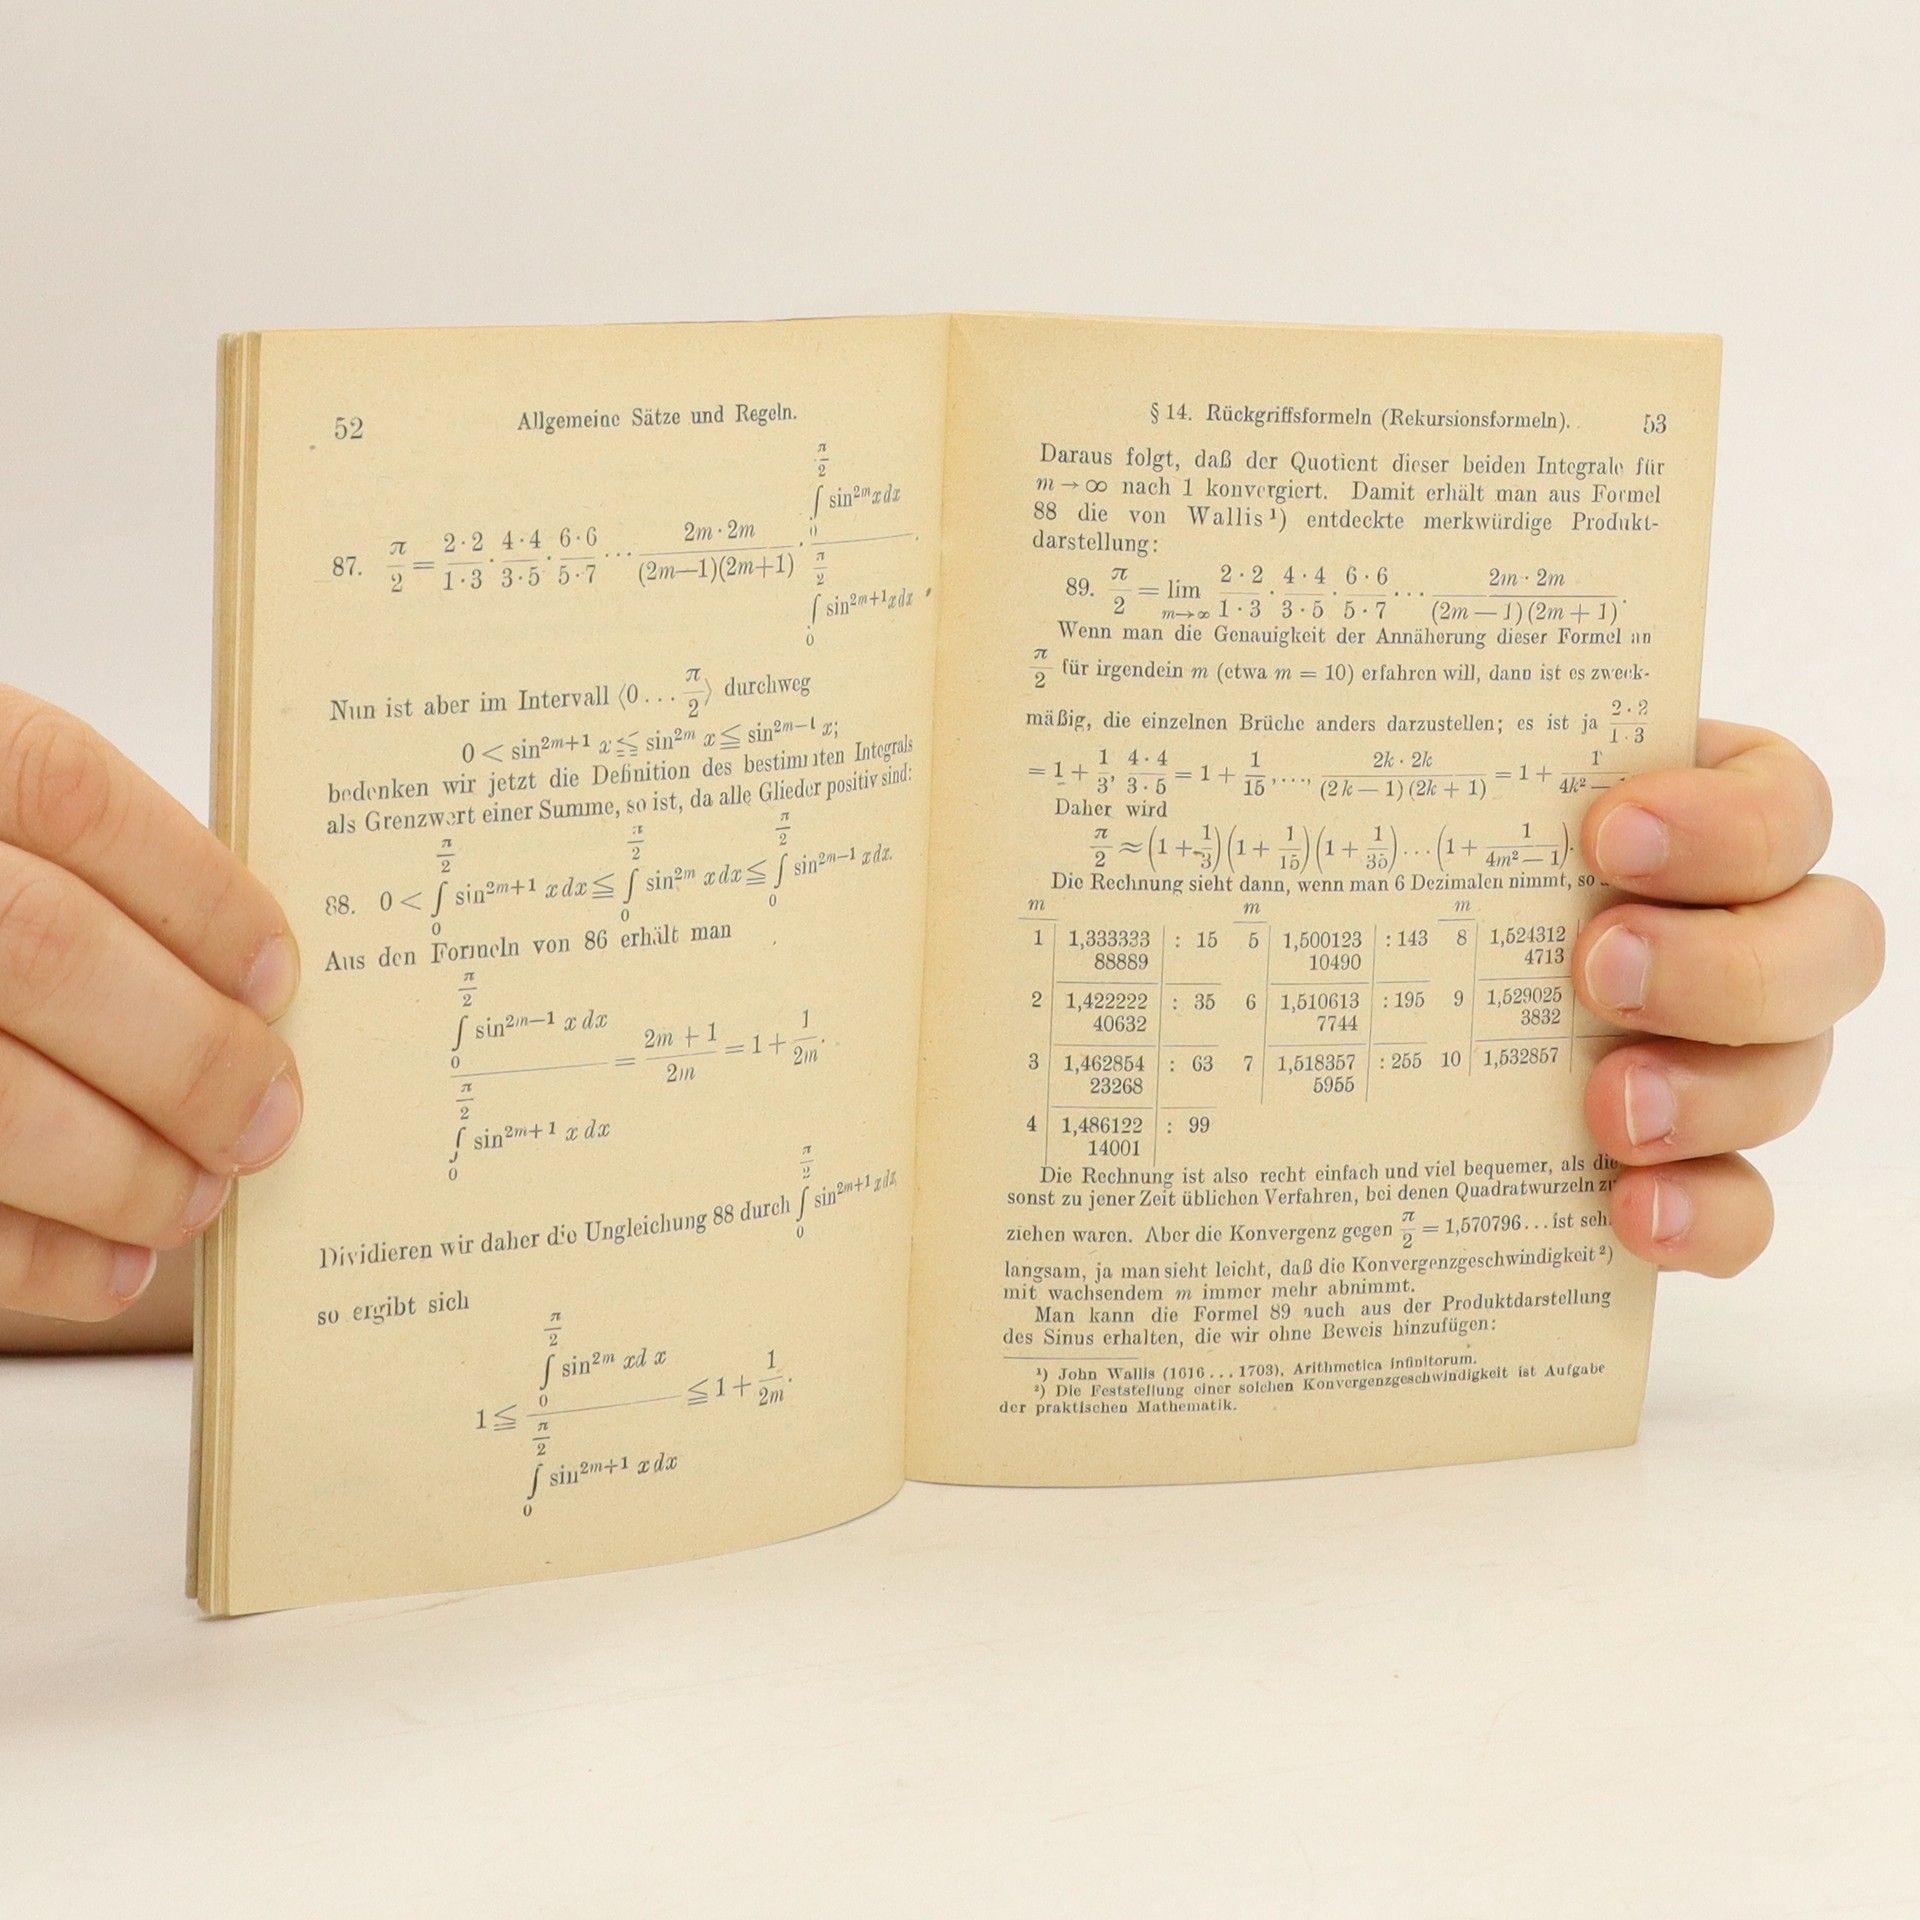 52 Allgemeine Sätze und Regeln.
87. π/2 = 2·2/1·3 · 4·4/3·5 · 6·6/5·7 ··· 2m·2m/(2m—1)(2m+1) · ∫₀^{π/2} sin^{2m} x dx / ∫₀^{π/2} sin^{2m+1} x dx .
Nun ist aber im Intervall ⟨0 ... π/2⟩ durchweg
0 < sin^{2m+1} x ≦ sin^{2m} x ≦ sin^{2m—1} x;
bedenken wir jetzt die Definition des bestimmten Integrals
als Grenzwert einer Summe, so ist, da alle Glieder positiv sind:
88. 0 < ∫₀^{π/2} sin^{2m+1} x dx ≦ ∫₀^{π/2} sin^{2m} x dx ≦ ∫₀^{π/2} sin^{2m—1} x dx.
Aus den Formeln von 86 erhält man
∫₀^{π/2} sin^{2m—1} x dx / ∫₀^{π/2} sin^{2m+1} x dx = 2m + 1/2m = 1 + 1/2m.
Dividieren wir daher die Ungleichung 88 durch ∫₀^{π/2} sin^{2m+1} x dx,
so ergibt sich
1 ≦ ∫₀^{π/2} sin^{2m} x d x / ∫₀^{π/2} sin^{2m+1} x dx ≦ 1 + 1/2m.
§ 14. Rückgriffsformeln (Rekursionsformeln). 53
Daraus folgt, daß der Quotient dieser beiden Integrale für
m → ∞ nach 1 konvergiert. Damit erhält man aus Formel
88 die von Wallis ¹) entdeckte merkwürdige Produkt-
darstellung:
89. π/2 = lim m→∞ 2·2/1·3 · 4·4/3·5 · 6·6/5·7 ··· 2m·2m/(2m — 1)(2m + 1).
Wenn man die Genauigkeit der Annäherung dieser Formel an
π/2 für irgendein m (etwa m = 10) erfahren will, dann ist es zweck-
mäßig, die einzelnen Brüche anders darzustellen; es ist ja 2·2/1·3
= 1 + 1/3, 4·4/3·5 = 1 + 1/15, ..., 2k·2k/(2k — 1)(2k + 1) = 1 + 1/4k² —
Daher wird
π/2 ≈ (1 + 1/3)(1 + 1/15)(1 + 1/35) ... (1 + 1/4m² — 1).
Die Rechnung sieht dann, wenn man 6 Dezimalen nimmt, so
m m m
1 1,333333 : 15 5 1,500123 : 143 8 1,524312
88889 10490 4713
2 1,422222 : 35 6 1,510613 : 195 9 1,529025
40632 7744 3832
3 1,462854 : 63 7 1,518357 : 255 10 1,532857
23268 5955
4 1,486122 : 99
14001
Die Rechnung ist also recht einfach und viel bequemer, als die
sonst zu jener Zeit üblichen Verfahren, bei denen Quadratwurzeln zu
ziehen waren. Aber die Konvergenz gegen π/2 = 1,570796... ist
langsam, ja man sieht leicht, daß die Konvergenzgeschwindigkeit ²)
mit wachsendem m immer mehr abnimmt.
Man kann die Formel 89 auch aus der Produktdarstellung
des Sinus erhalten, die wir ohne Beweis hinzufügen:
¹) John Wallis (1616 ... 1703), Arithmetica infinitorum.
²) Die Feststellung einer solchen Konvergenzgeschwindigkeit ist Aufgabe
der praktischen Mathematik.